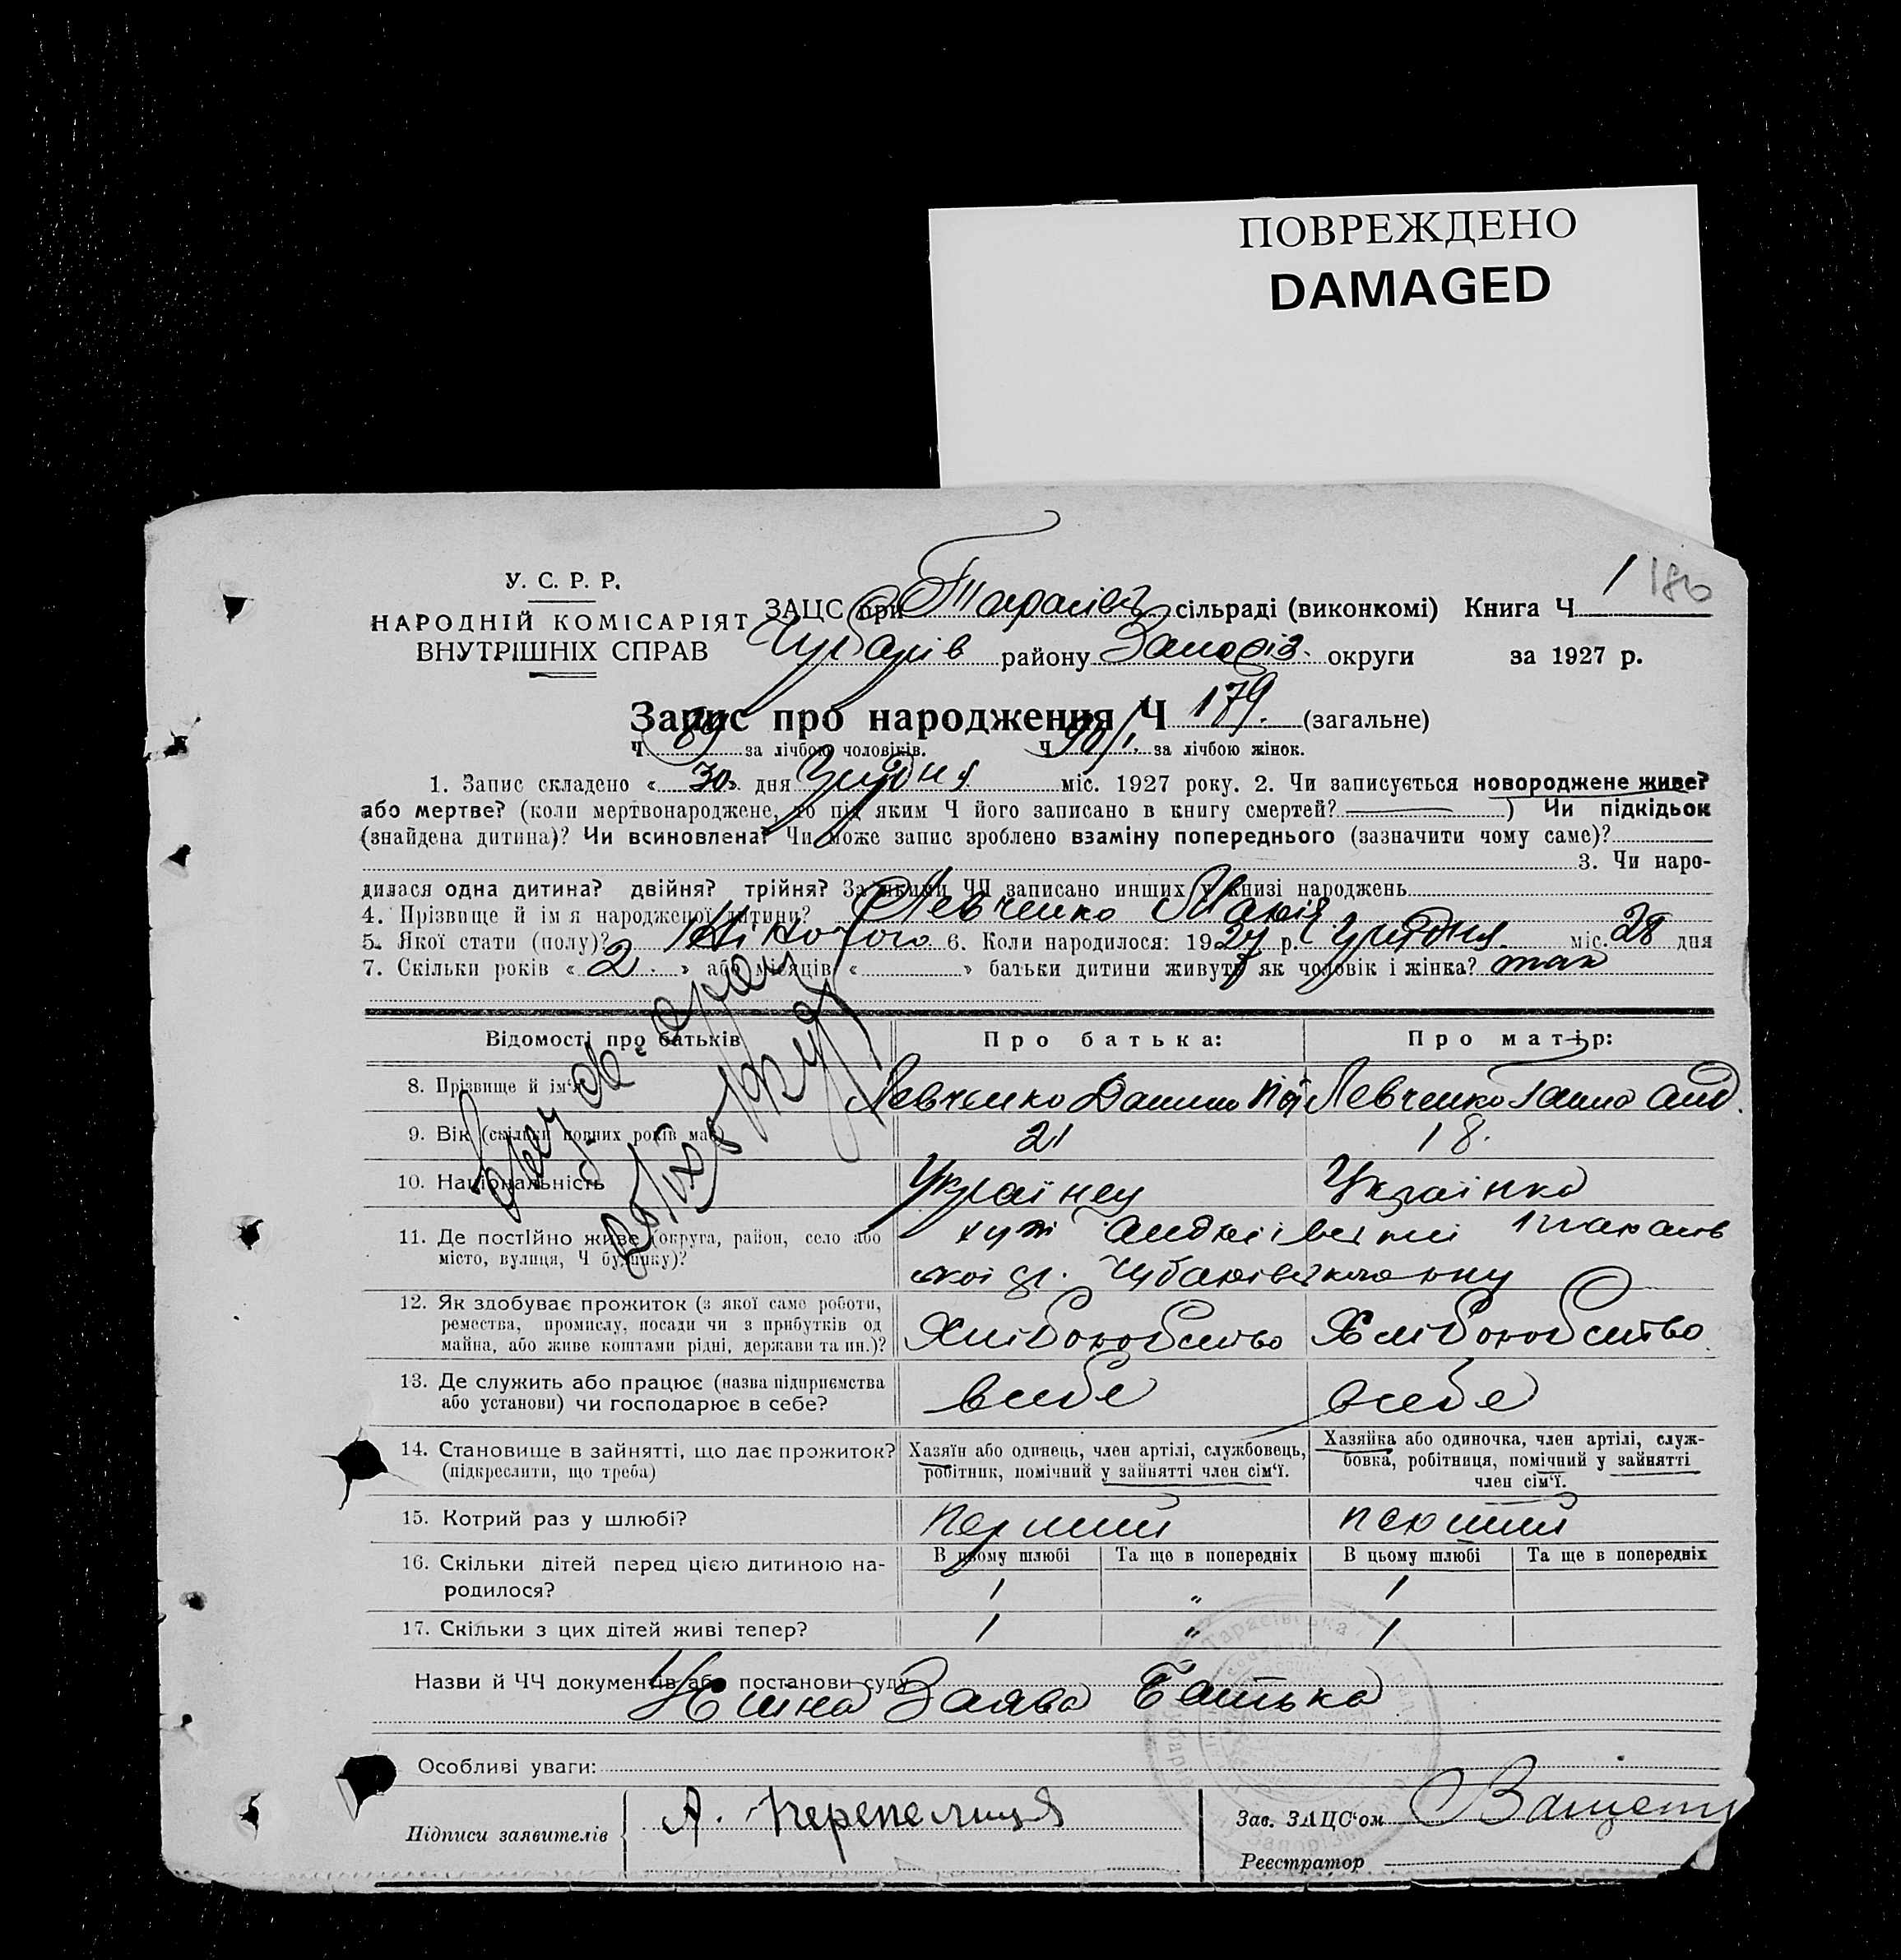 ПОВРЕЖДЕНО
DAMAGED
180
У. С. Р. Р.
НАРОДНІЙ КОМІСАРІЯТ
ВНУТРІШНІХ СПРАВ
ЗАЦС при Тарасівс сільраді (виконкомі) Книга Ч 1
Чубарів району Запоріз. округи за 1927 р.
Запис про народження Ч 179. (загальне)
Ч 89 за лічбою чоловіків. Ч 90/1. за лічбою жінок.
1. Запис складено « 30 » дня Грудня міс. 1927 року. 2. Чи записується новороджене живе?
або мертве? (коли мертвонароджене, то під яким Ч його записано в книгу смертей? ) Чи підкідьок
(знайдена дитина)? Чи всиновлена? Чи може запис зроблено взаміну попереднього (зазначити чому саме)?
3. Чи наро-
дилася одна дитина? двійня? трійня? За якими ЧЧ записано инших у книзі народжень
4. Прізвище й ім'я народженої дитини? Левченко Марія
5. Якої стати (полу)? Жіночого 6. Коли народилося: 1927 р. Грудня міс. 28 дня
7. Скільки років « 2 » або місяців « » батьки дитини живуть як чоловік і жінка? так
Відомості про батьків Про батька: Про матір:
8. Прізвище й ім'я Левченко Данило Левченко Ганна Анд.
9. Вік (скільки повних років має) 21 18.
10. Національність Українець Українка
11. Де постійно живе (округа, район, село або
місто, вулиця, Ч будинку)?
хут Андріївській
ської Чубарівського рну
12. Як здобуває прожиток (з якої саме роботи,
ремества, промислу, посади чи з прибутків од
майна, або живе коштами рідні, держави та ин.)?
Хліборобство Хліборобство
13. Де служить або працює (назва підприємства
або установи) чи господарює в себе?
всебе всебе
14. Становище в зайнятті, що дає прожиток?
(підкреслити, що треба)
Хазяїн або одинець, член артілі, службовець,
робітник, помічний у зайнятті член сім'ї.
Хазяйка або одиночка, член артілі, служ-
бовка, робітниця, помічний у зайнятті
член сім'ї.
15. Котрий раз у шлюбі? перший перший
16. Скільки дітей перед цією дитиною на-
родилося?
В цьому шлюбі Та ще в попередніх В цьому шлюбі Та ще в попередніх
1 " 1
17. Скільки з цих дітей живі тепер? 1 " 1
Назви й ЧЧ документів або постанови суду
Заява Батька
Особливі уваги:
Підписи заявителів А. Перепелиця
Зав. ЗАЦС'ом
Реєстратор